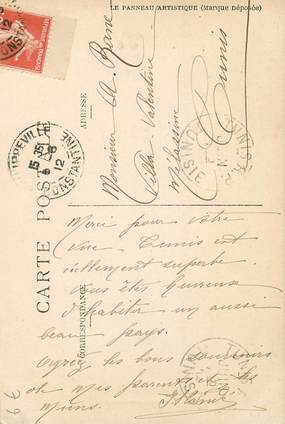 LE PANNEAU ARTISTIQUE (Marque Déposée)
CARTE POSTALE
ADRESSE
Monsieur A.
Villa Valentine
Mélassine
Tunis
CORRESPONDANCE
Merci pour votre
vue. Tunis est
réellement superbe.
Vous êtes heureux
d'habiter un aussi
beau pays.
les bons souvenirs
de mes parents et les
miens.
PHILIPPEVILLE
CONSTANTINE
12
TUNIS
6 €